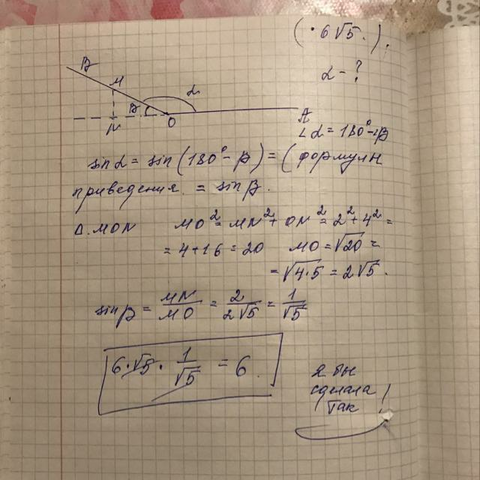 ( · 6√5 . ) .
α - ?
B
M
α
β
N
O
A
∠α = 180° - β
sin α = sin (180° - β) = ( формулы
приведения = sin β .
Δ MON MO² = MN² + ON² = 2² + 4² =
= 4 + 16 = 20 MO = √20 =
= √4·5 = 2√5 .
sin β = MN/MO = 2/2√5 = 1/√5
6 · √5 · 1/√5 = 6 .
Я бы
сделала
так